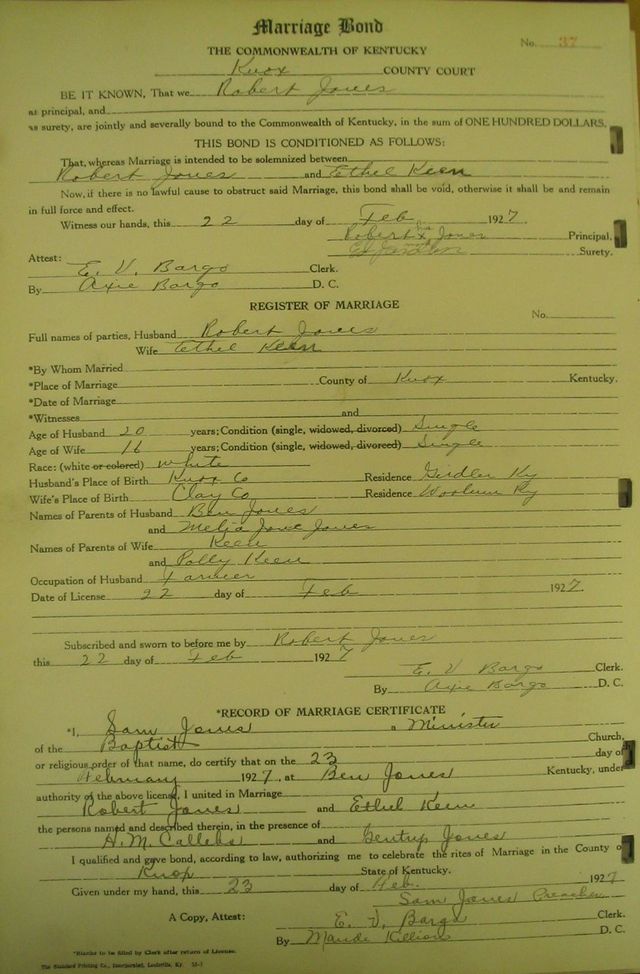 Marriage Bond
No. 37
THE COMMONWEALTH OF KENTUCKY
Knox COUNTY COURT
BE IT KNOWN, That we Robert Jones
as principal, and
as surety, are jointly and severally bound to the Commonwealth of Kentucky, in the sum of ONE HUNDRED DOLLARS.
THIS BOND IS CONDITIONED AS FOLLOWS:
That, whereas Marriage is intended to be solemnized between
Robert Jones and Ethel Keen
Now, if there is no lawful cause to obstruct said Marriage, this bond shall be void, otherwise it shall be and remain
in full force and effect.
Witness our hands, this 22 day of Feb 1927
Robert x Jones Principal,
Surety.
Attest: E. V. Bargo Clerk.
By Axie Bargo D. C.
REGISTER OF MARRIAGE
No.
Full names of parties, Husband Robert Jones
Wife Ethel Keen
*By Whom Married
*Place of Marriage County of Knox Kentucky.
*Date of Marriage
*Witnesses and
Age of Husband 20 years; Condition (single, widowed, divorced) Single
Age of Wife 16 years; Condition (single, widowed, divorced) Single
Race: (white or colored) white
Husband's Place of Birth Knox Co Residence Girdler Ky
Wife's Place of Birth Clay Co Residence Woollum Ky
Names of Parents of Husband Ben Jones
and Jane Jones
Names of Parents of Wife Keen
and Polly Keen
Occupation of Husband Farmer
Date of License 22 day of Feb 1927.
Subscribed and sworn to before me by Robert Jones
this 22 day of Feb 1927
E. V Bargo Clerk.
By Axie Bargo D. C.
*RECORD OF MARRIAGE CERTIFICATE
*I, Sam Jones a Minister
of the Baptist Church,
or religious order of that name, do certify that on the 23 day of
February 1927, at Ben Jones Kentucky, under
authority of the above license, I united in Marriage
Robert Jones and Ethel Keen
the persons named and described therein, in the presence of
H. M. Callebs and Gentry Jones
I qualified and gave bond, according to law, authorizing me to celebrate the rites of Marriage in the County of
Knox State of Kentucky.
Given under my hand, this 23 day of Feb. 1927
Sam Jones Preacher
A Copy, Attest: E. V. Bargo Clerk.
By Maude Killion D. C.
*Blanks to be filled by Clerk after return of License.
The Standard Printing Co., Incorporated, Louisville, Ky